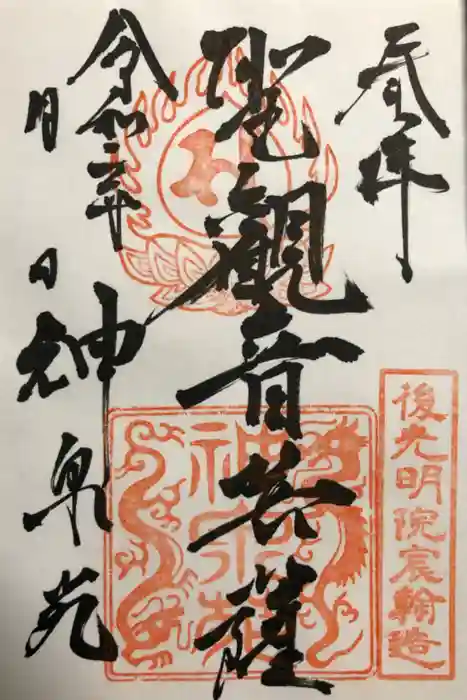 奉拝
聖観音菩薩
令和二年
月 日
神泉苑
後光明院宸翰造
神泉苑